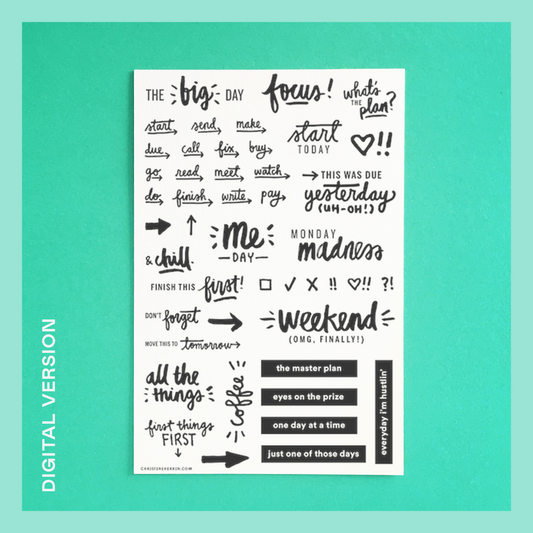 THE big DAY
focus!
what's
THE plan?
start send make
due call fix buy
go read meet watch
do finish write pay
start
TODAY
!!
THIS WAS DUE
yesterday
(UH-OH!)
& chill.
me
DAY
MONDAY
madness
FINISH THIS first!
!! !! ?!
DON'T forget
MOVE THIS TO tomorrow
weekend
(OMG, FINALLY!)
all the
things
coffee
first things
FIRST
the master plan
eyes on the prize
one day at a time
just one of those days
everyday i'm hustlin'
DIGITAL VERSION